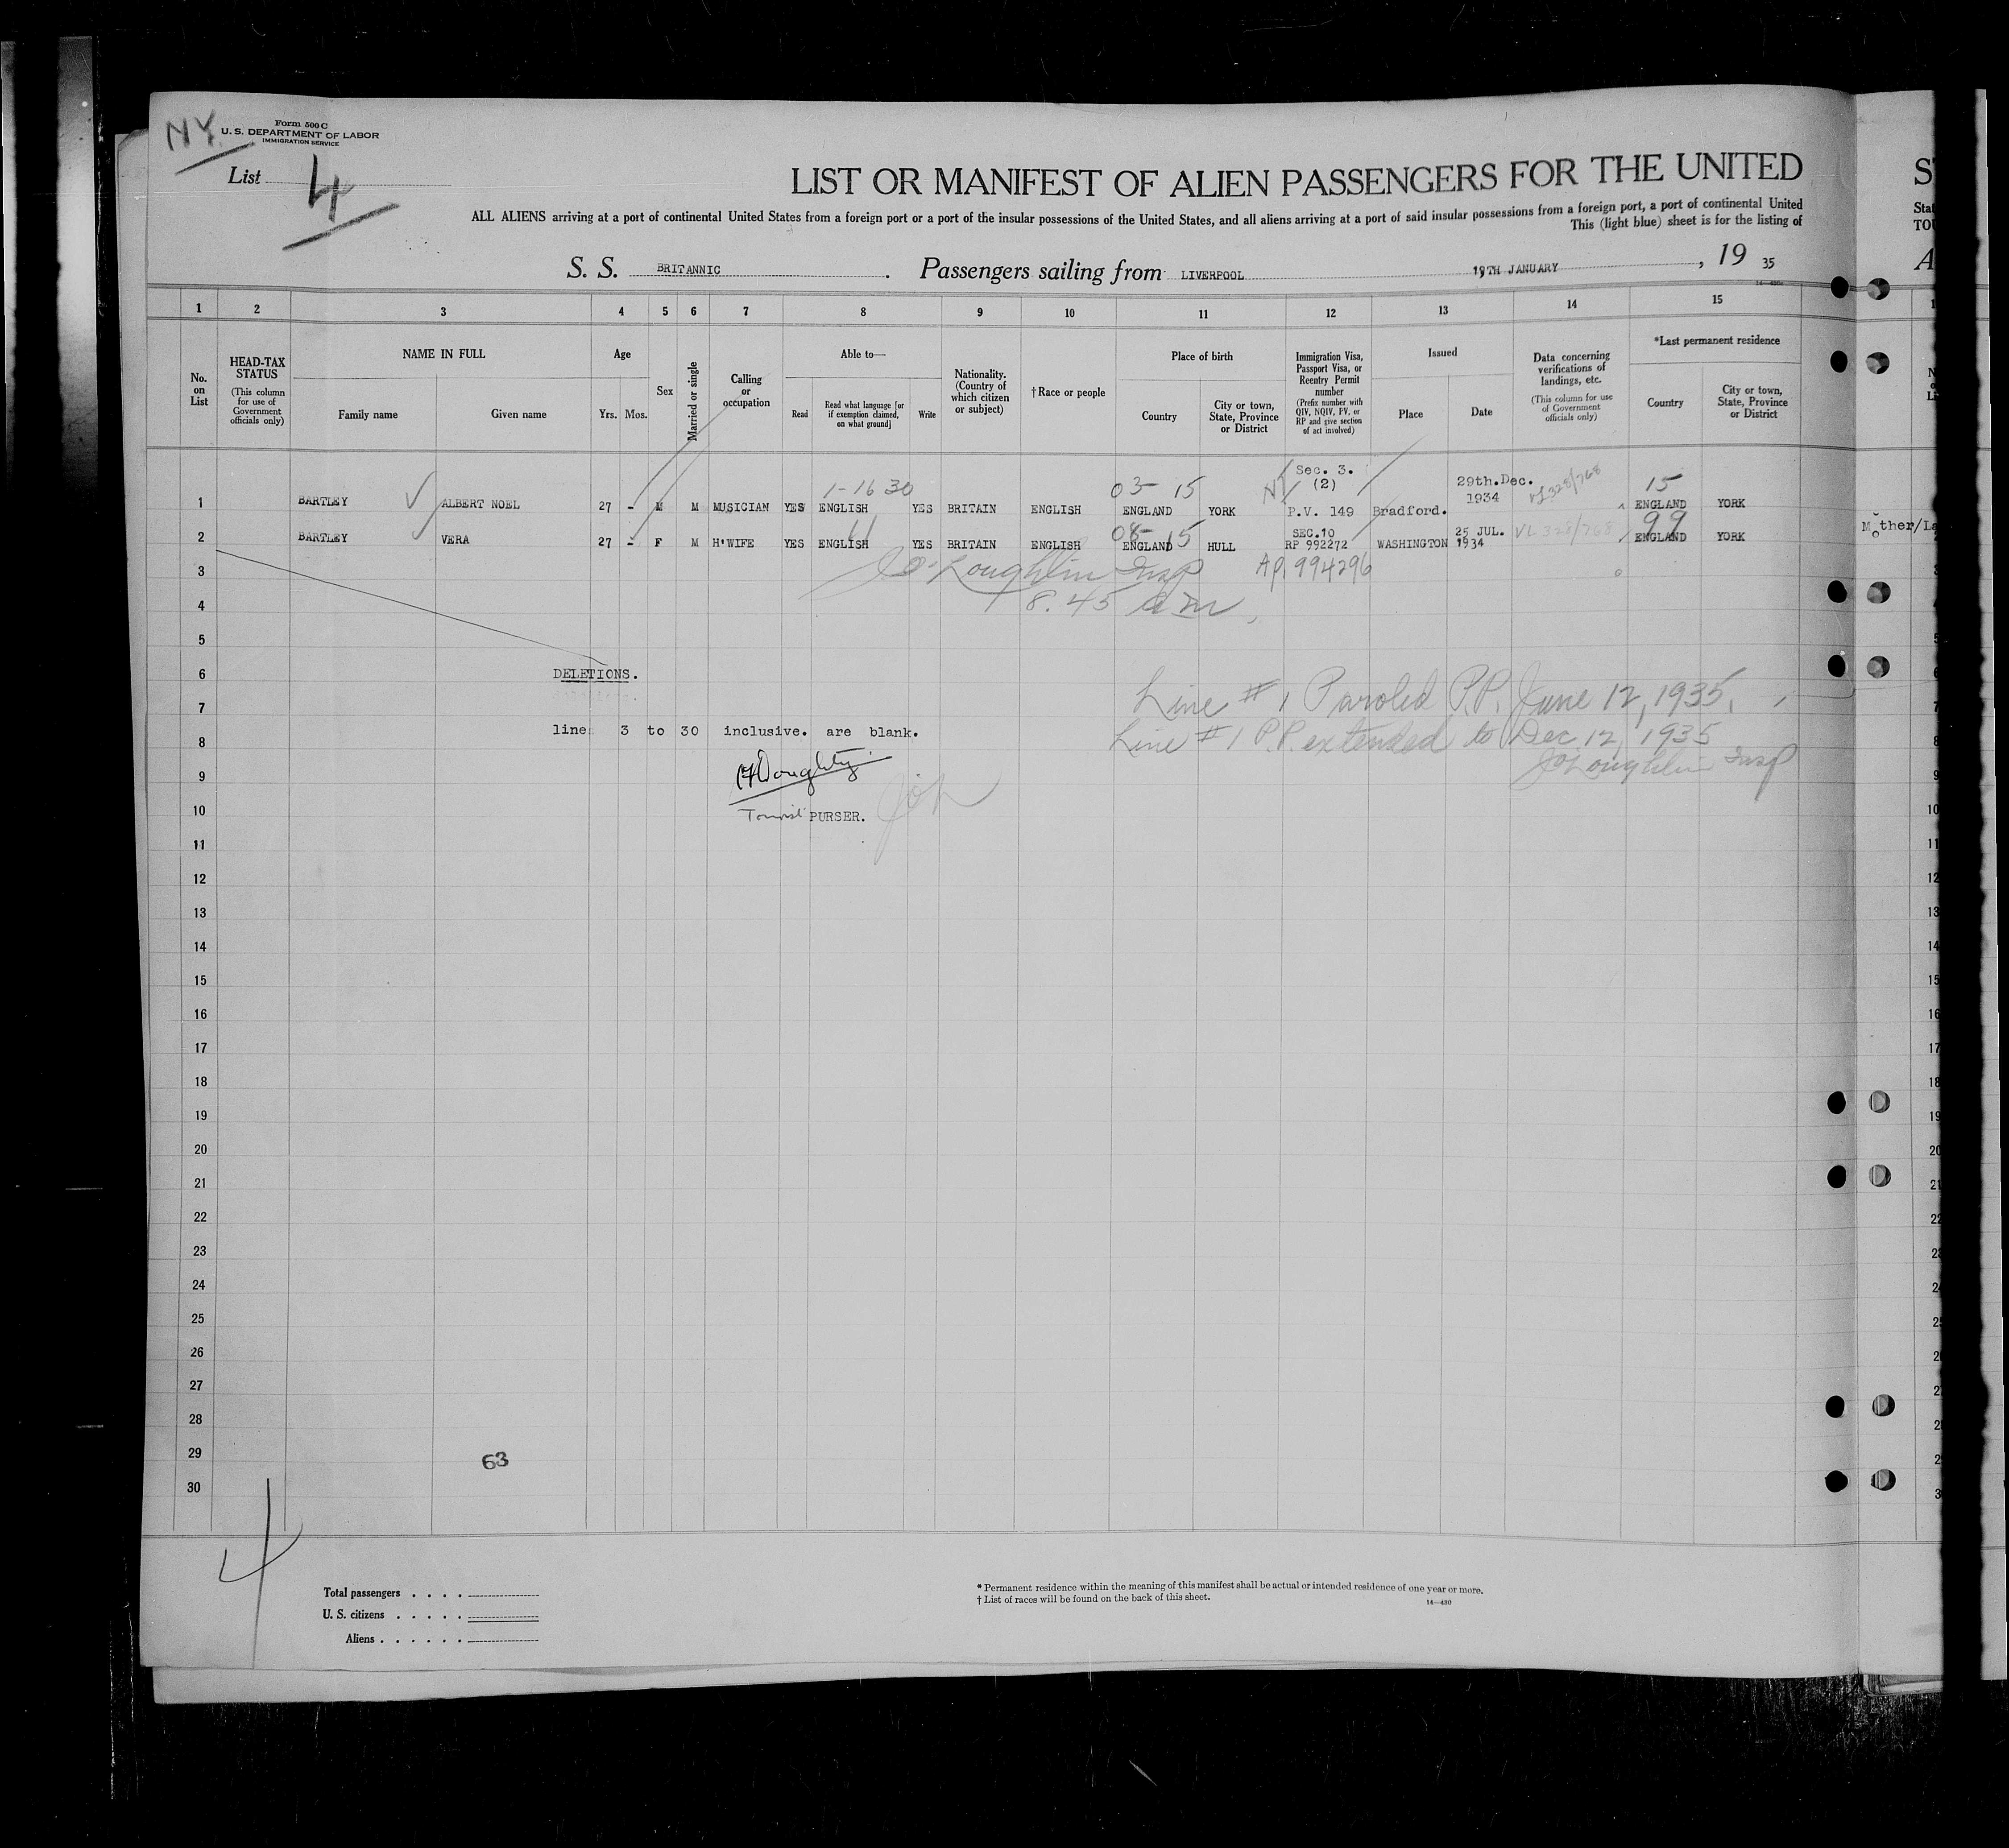 NY.
Form 500 C
U. S. DEPARTMENT OF LABOR
IMMIGRATION SERVICE
List 4
LIST OR MANIFEST OF ALIEN PASSENGERS FOR THE UNITED
ALL ALIENS arriving at a port of continental United States from a foreign port or a port of the insular possessions of the United States, and all aliens arriving at a port of said insular possessions from a foreign port, a port of continental United
This (light blue) sheet is for the listing of
S. S. BRITANNIC . Passengers sailing from LIVERPOOL 19TH JANUARY , 19 35
1 2 3 4 5 6 7 8 9 10 11 12 13 14 15
No. on List
HEAD-TAX STATUS (This column for use of Government officials only)
NAME IN FULL
Family name Given name
Age
Yrs. Mos.
Sex
Married or single
Calling or occupation
Able to—
Read
Read what language [or if exemption claimed, on what ground]
Write
Nationality. (Country of which citizen or subject)
† Race or people
Place of birth
Country
City or town, State, Province or District
Immigration Visa, Passport Visa, or Reentry Permit number (Prefix number with QIV, NQIV, PV, or RP and give section of act involved)
Issued
Place Date
Data concerning verifications of landings, etc. (This column for use of Government officials only)
*Last permanent residence
Country
City or town, State, Province or District
1-16 30 03 15 Sec. 3. (2) 29th.Dec. 1934 VL 328/768 15
1 BARTLEY ALBERT NOEL 27 - M M MUSICIAN YES ENGLISH YES BRITAIN ENGLISH ENGLAND YORK P.V. 149 Bradford. ENGLAND YORK
11 08 15 SEC.10 25 JUL. VL 328/768 99
2 BARTLEY VERA 27 - F M H'WIFE YES ENGLISH YES BRITAIN ENGLISH ENGLAND HULL RP 992272 WASHINGTON 1934 ENGLAND YORK
3 O'Loughlin Insp Ap. 994296
4 8.45 am.
5
6 DELETIONS.
7 Line #1 Paroled P.P. June 12, 1935.
line 3 to 30 inclusive. are blank.
8 Line #1 P.P. extended to Dec 12, 1935
9 Doughty JO'Loughlin Insp
10 Tourist PURSER.
11
12
13
14
15
16
17
18
19
20
21
22
23
24
25
26
27
28
29 63
30
4
Total passengers
U. S. citizens
Aliens
* Permanent residence within the meaning of this manifest shall be actual or intended residence of one year or more.
† List of races will be found on the back of this sheet.
14—430